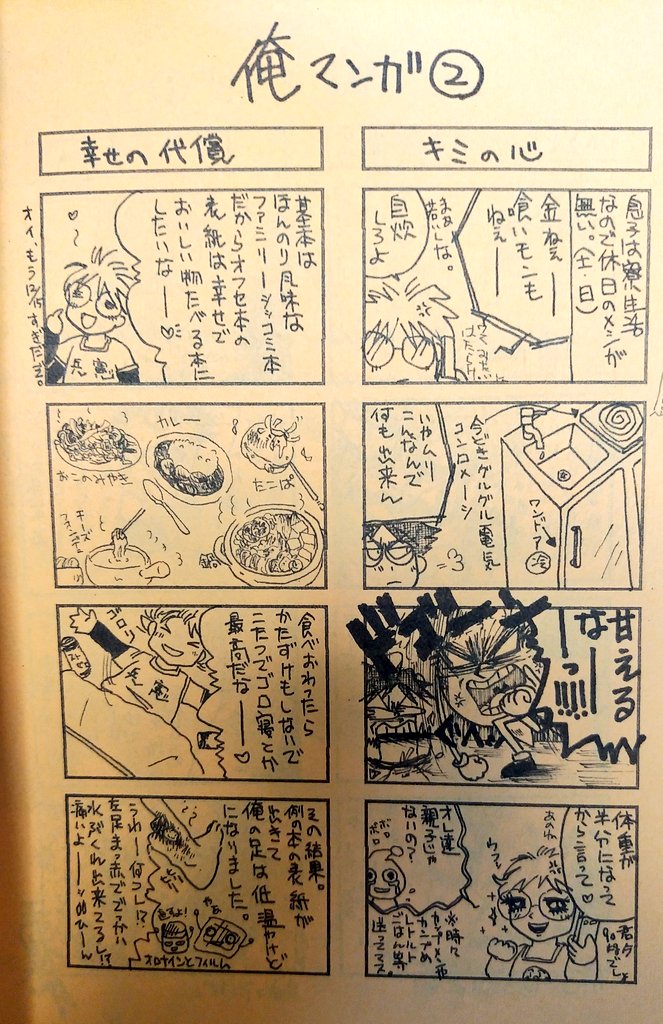 俺マンガ②
キミの心
息子は寮生活
なので休日のメシが
無い。(土・日)
金ねぇー
喰いモンも
ねぇー
まあ若いしな。
自炊
しろよ
今どきグルグル電気
コンロメーン
いやムリー
こんなんで
何も出来ん
ワンドア
冷
甘える
なーーっ!!!!!
体重が
半分になって
から言って♥
あのね
君今
90キロでしょ
ウフッ
オレ達
親子じゃ
ないの?
ボロ
ボロ
※時々
カップメン
レトルト
ごはん等
送ってマス
幸せの代償
基本は
ほんのり風味な
ファミリーシシコミ本
だからオフセ本の
表紙は幸せで
おいしい物たべる本に
したいなーー♥
兵憲
カレー
おこのみやき
たこぱ
チーズ
フォンデュ
鍋
食べおわったら
かたずけもしないで
こたつでゴロ寝とか
最高だなーー♥
ゴロリ
その結果。
例の本の表紙が
出来て
俺の足は低温やけど
になりました。
うわー何コレ!?
左足まっ赤ででっかい
水ぶくれ出来てるし!?
痛いよーー
やあ
オロナインとフィルム